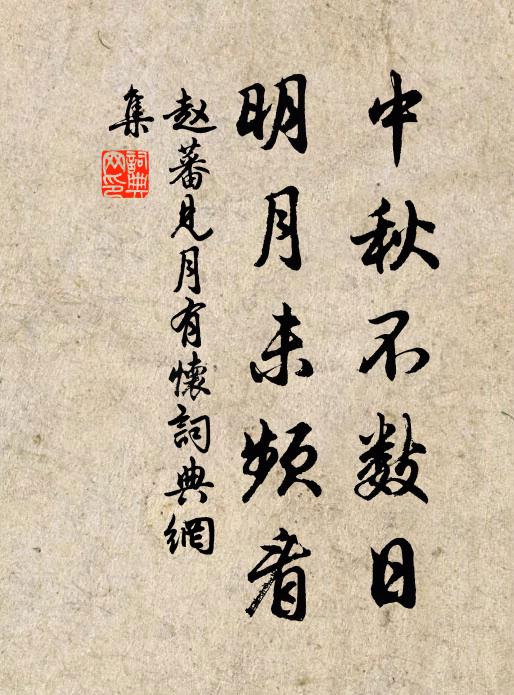 中秋不数日
明月未频看
赵蕃见月有懷詞典網
集
詞典网印